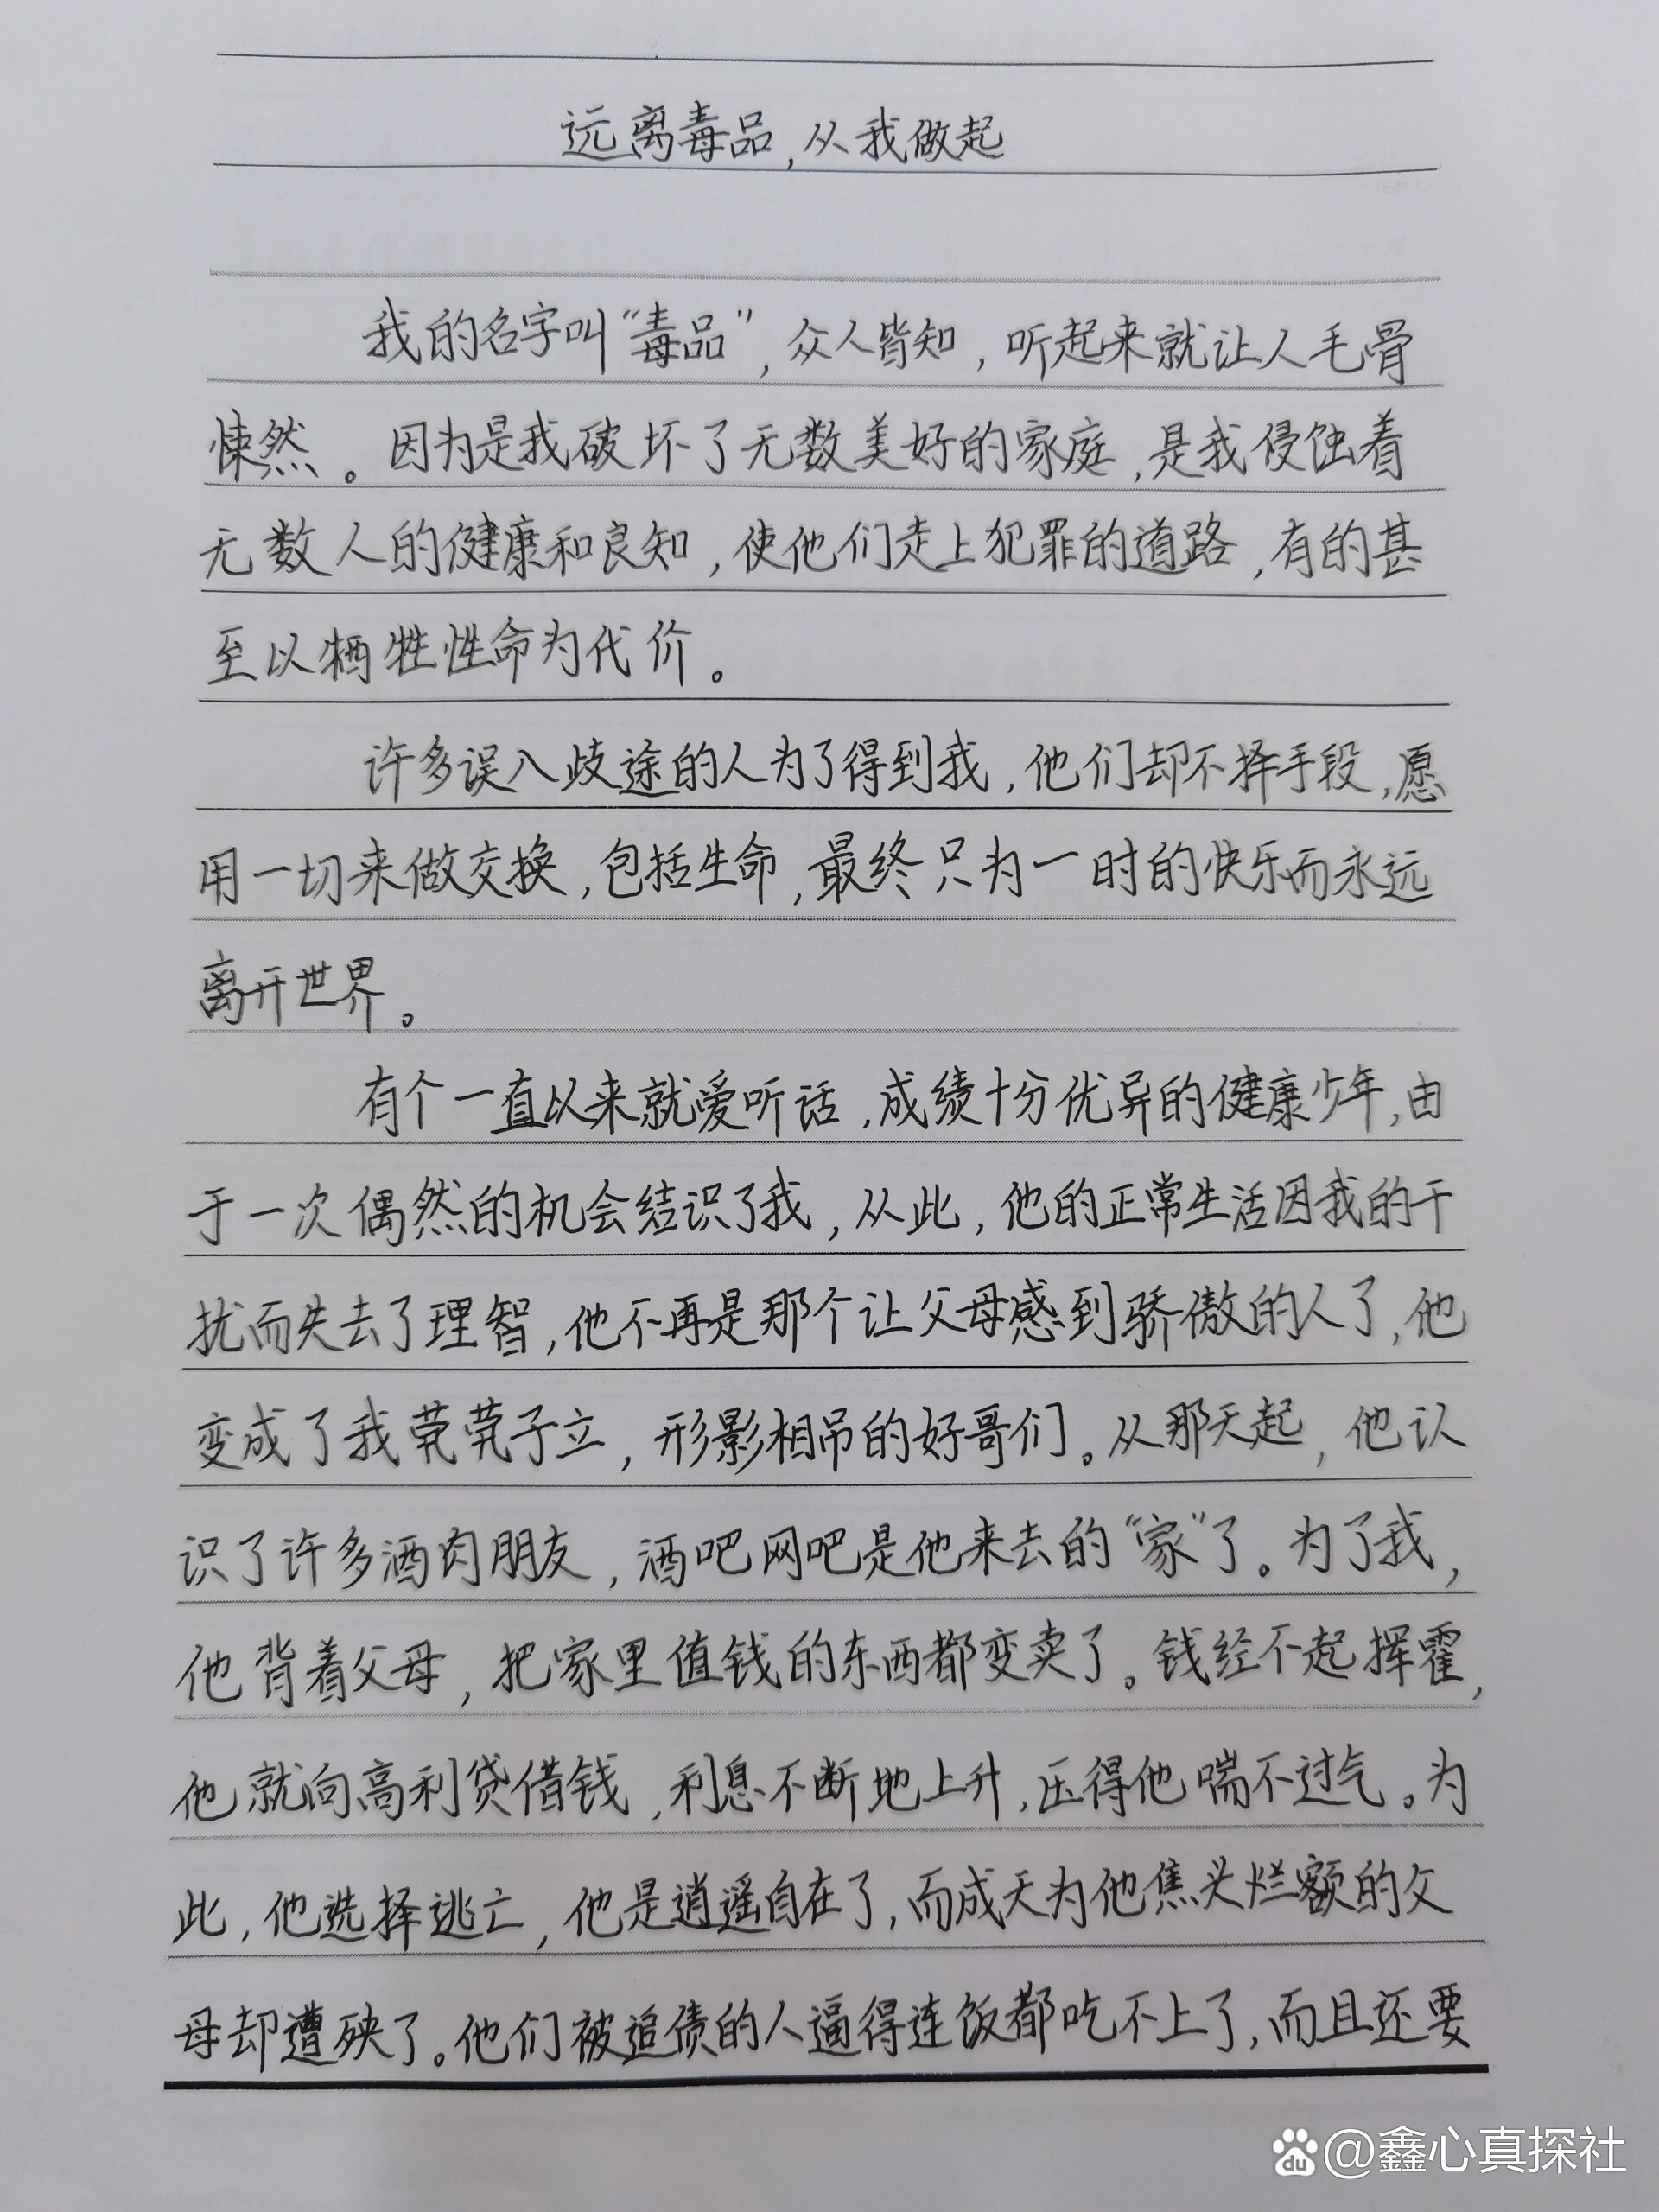 远离毒品,从我做起
我的名字叫“毒品”,众人皆知,听起来就让人毛骨
悚然。因为是我破坏了无数美好的家庭,是我侵蚀着
无数人的健康和良知,使他们走上犯罪的道路,有的甚
至以牺牲性命为代价。
许多误入歧途的人为了得到我,他们却不择手段,愿
用一切来做交换,包括生命,最终只为一时的快乐而永远
离开世界。
有个一直以来就爱听话,成绩十分优异的健康少年,由
于一次偶然的机会结识了我,从此,他的正常生活因我的干
扰而失去了理智,他不再是那个让父母感到骄傲的人了,他
变成了我茕茕孑立,形影相吊的好哥们。从那天起,他认
识了许多酒肉朋友,酒吧网吧是他来去的“家”了。为了我,
他背着父母,把家里值钱的东西都变卖了。钱经不起挥霍,
他就向高利贷借钱,利息不断地上升,压得他喘不过气。为
此,他选择逃亡,他是逍遥自在了,而成天为他焦头烂额的父
母却遭殃了。他们被追债的人逼得连饭都吃不上了,而且还要
du @鑫心真探社